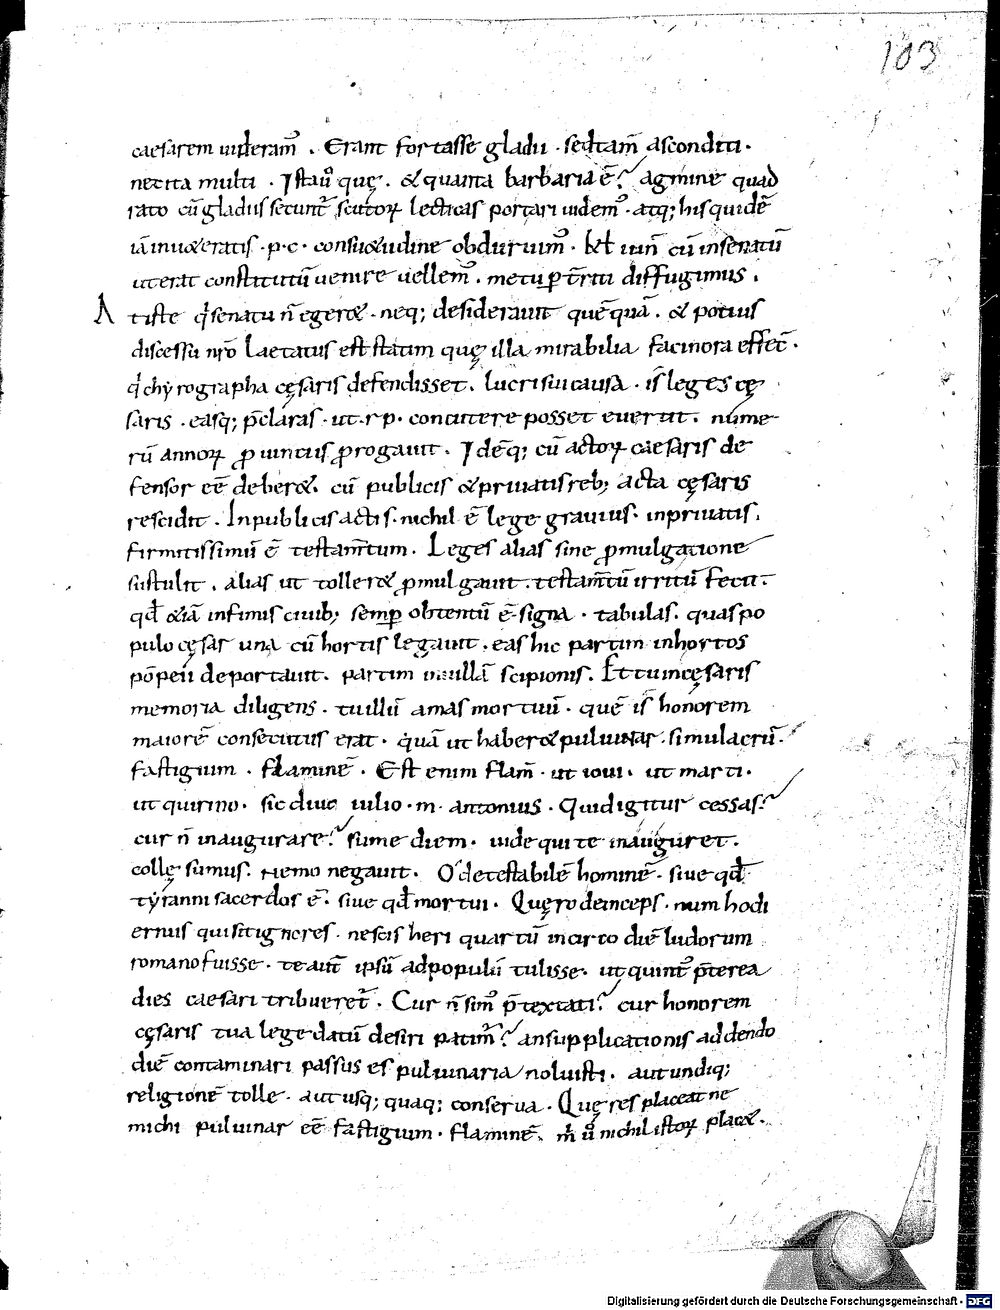 103
caesarem uideram᷒. Erant fortasse gladii. sed tam̄ absconditi.
nec ita multi. Istaū quę. & quanta barbaria ē? agmine quad
rato cū gladiis secunt᷒ scutoꝝ lecticas portari uidem᷒. atq; his quidē
iā inu&eratis .p.c. consu&udine obduruim᷒. kł iun̄ cū in senatū
ut erat constitutū uenire uellem᷒. metu ꝑt̄rriti diffugimus.
At iste q̇ senatu n̄ eger&. neq; desiderauit quēquā. & potius
discessu nr̄o laetatus est statim quę illa mirabilia facinora effec̄.
q̇ chyrographa cęsaris defendisset. lucri sui causa. is leges cę
saris. easq; p̄claras. ut .r p. concutere posset euertit. nume
rū annoꝝ ꝓuinciis ꝓrogauit. Idēq; cū actoꝝ caesaris de
fensor eē deber&. cū publicis & priuatis reb; acta cęsaris
rescidit. In publicis actis. nichil ē lege grauius. in priuatis.
firmitissimū ē testam̄tum. Leges alias sine ꝓmulgatione
sustulit. alias ut toller& ꝓmulgauit. testam̄tū irritū fecit.
qd̄ &iā infimis ciuib; semꝑ obtentū ē. signa. tabulas. quas po
pulo cęsar una cū hortis legauit. eas hic partim in hortos
pōpeii deportauit. partim in uillā scipionis. Et tu in cęsaris
memoria diligens. tu illū amas mortuū. quē is honorem
maiorē consecutus erat. quā ut haber& puluinar. simulacrū.
fastigium. flaminē. Est enim flam̄. ut ioui. ut marti.
ut quirino. sic diuo iulio .m. antonius. Quid igitur cessas?
cur n̄ inaugurare? sume diem. uide qui te inauguret.
collę sumus. nemo negauit. O detestabilē hominē. siue qd̄
tyranni sacerdos ē. siue qd̄ mortui. Quęro deinceps. num hodi
ernus qui sit ignores. nescis heri quartū in circo diē ludorum
romano fuisse. te aut̄ ipsū ad populū tulisse. ut quint᷒ p̄terea
dies caesari tribueret᷒. Cur n̄ sim᷒ p̄textati? cur honorem
cęsaris tua lege datū desiri patim̄? an supplicationis addendo
diē contaminari passus es puluinaria noluisti. aut undiq;
religionē tolle. aut usq; quaq; conserua. Quęres placeat ne
michi puluinar eē fastigium. flaminē. m̄ ū nichil istoꝝ plac&.
Digitalisierung gefördert durch die Deutsche Forschungsgemeinschaft - DFG